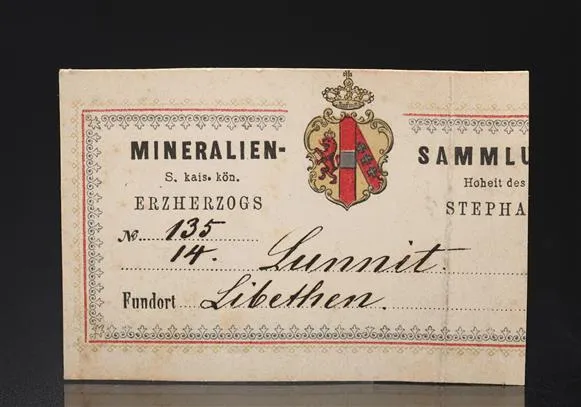 MINERALIEN- SAMMLU
S. kais. kön. Hoheit des
ERZHERZOGS STEPHA
No. 135
14. Lunnit.
Fundort Libethen.